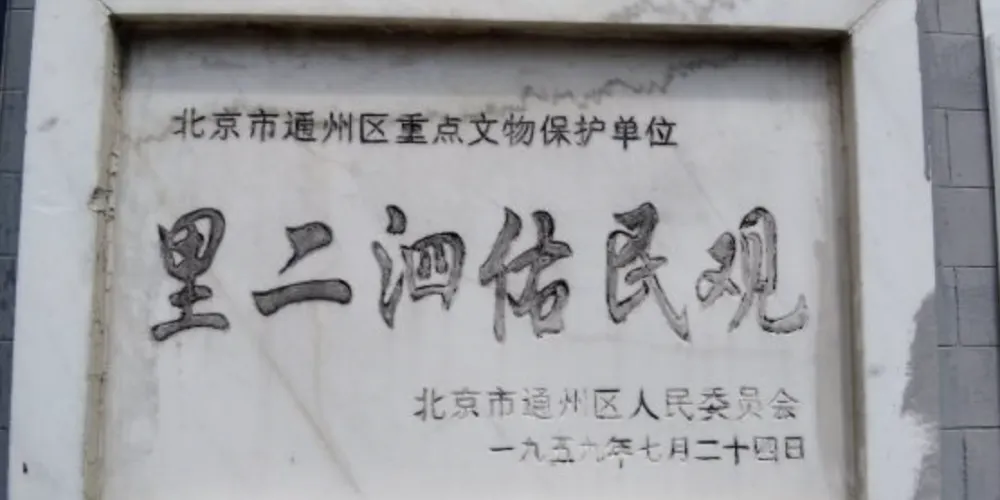 北京市通州区重点文物保护单位
里二泗佑民观
北京市通州区人民委员会
一九五九年七月二十四日